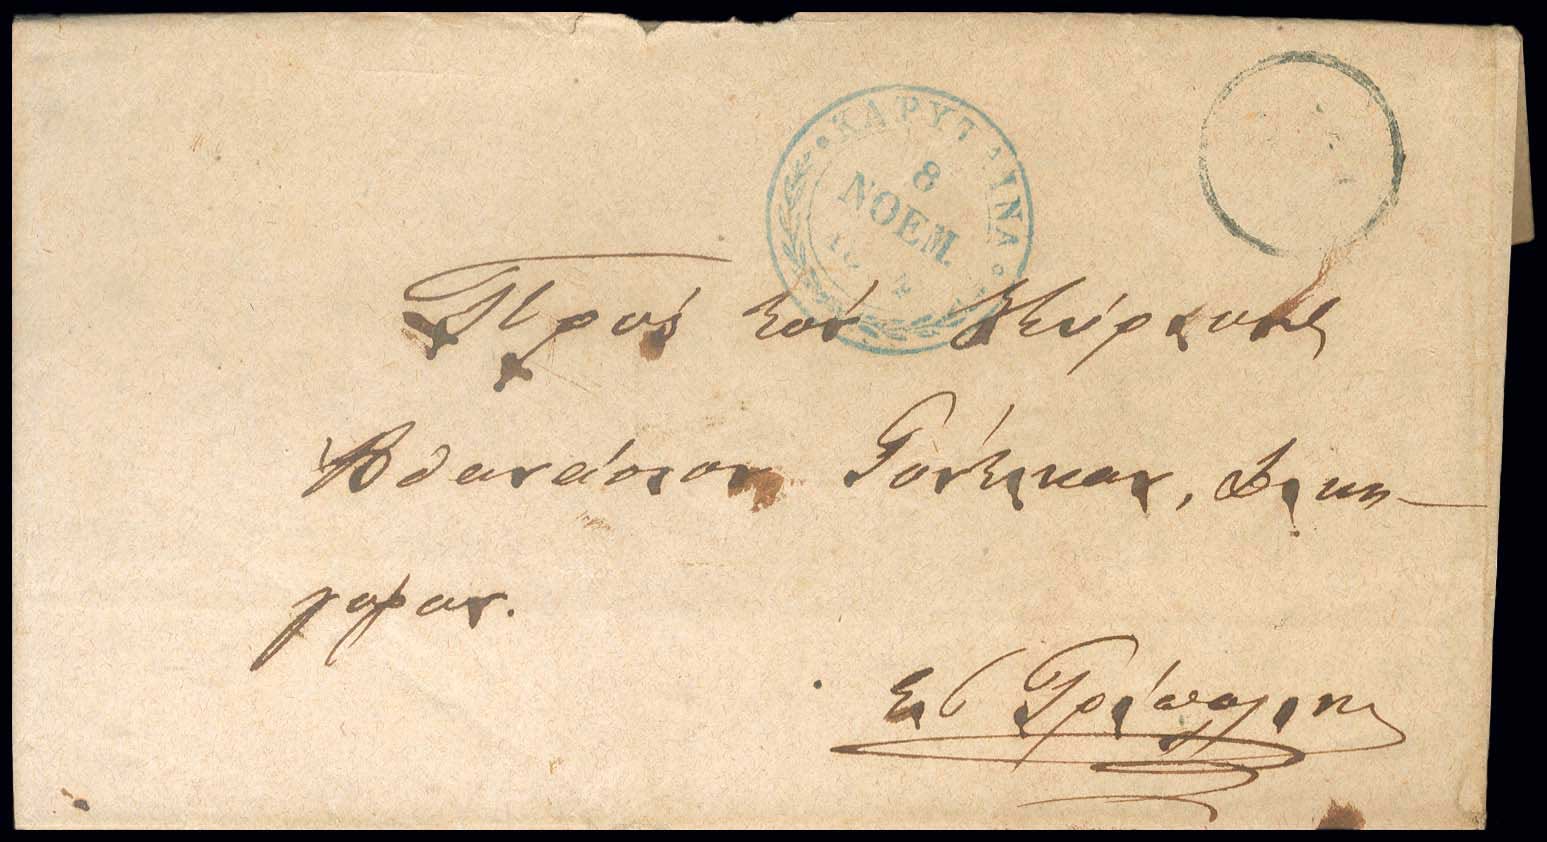 ΚΑΡΥΤΑΙΝΑ
8
ΝΟΕΜ.
Πρὸς τὸν Κύριον
Ἀθανάσιον Γόντικαν, Δικη-
γόρον.
Εἰς Τρίπολιν